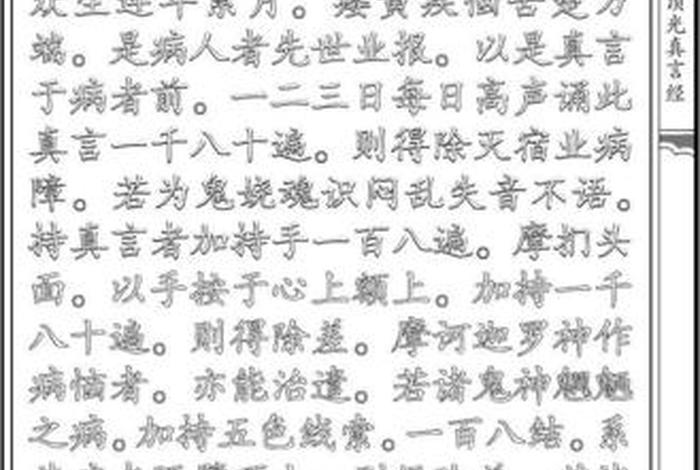 众生连年累月。痿黄疾恼苦楚万
端。是病人者先世业报。以是真言
于病者前。一二三日每日高声诵此
真言一千八十遍。则得除灭宿业病
障。若为鬼娆魂识闷乱失音不语。
持真言者加持手一百八遍。摩扪头
面。以手按于心上额上。加持一千
八十遍。则得除差。摩诃迦罗神作
病恼者。亦能治遣。若诸鬼神魍魉
之病。加持五色线索。一百八结。系
顶光真言经